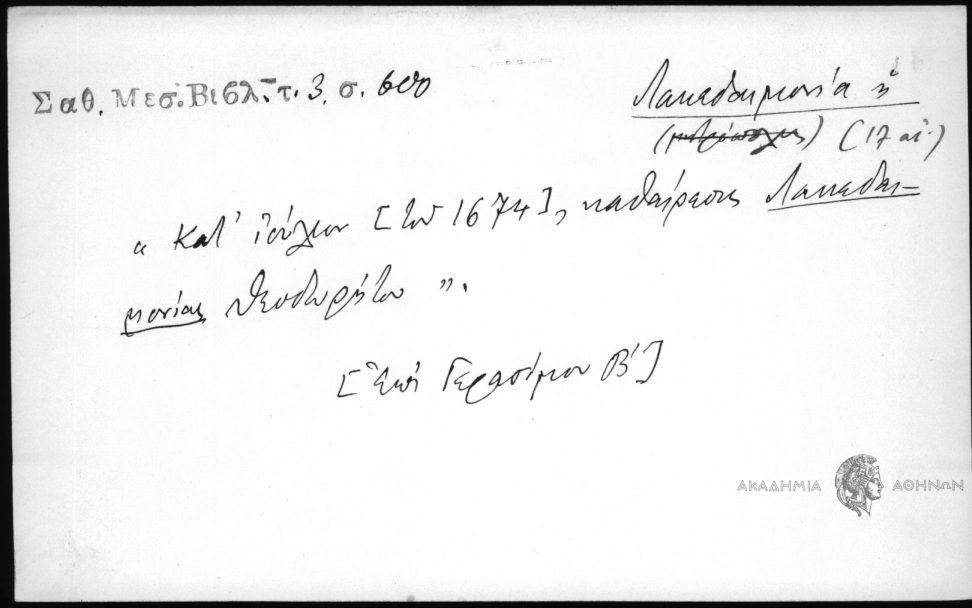 Σαθ. Μεσ. Βιβλ. τ. 3, σ. 600
Λακεδαιμονία ἡ
(μητρόπολις) (17 αἰ.)
« Κατ' ἰούλιον [τοῦ 1674], καθαίρεσις Λακεδαι-
μονίας Θεοδωρήτου ».
[Ἐπὶ Γερασίμου Β']
ΑΚΑΔΗΜΙΑ ΑΘΗΝΩΝ